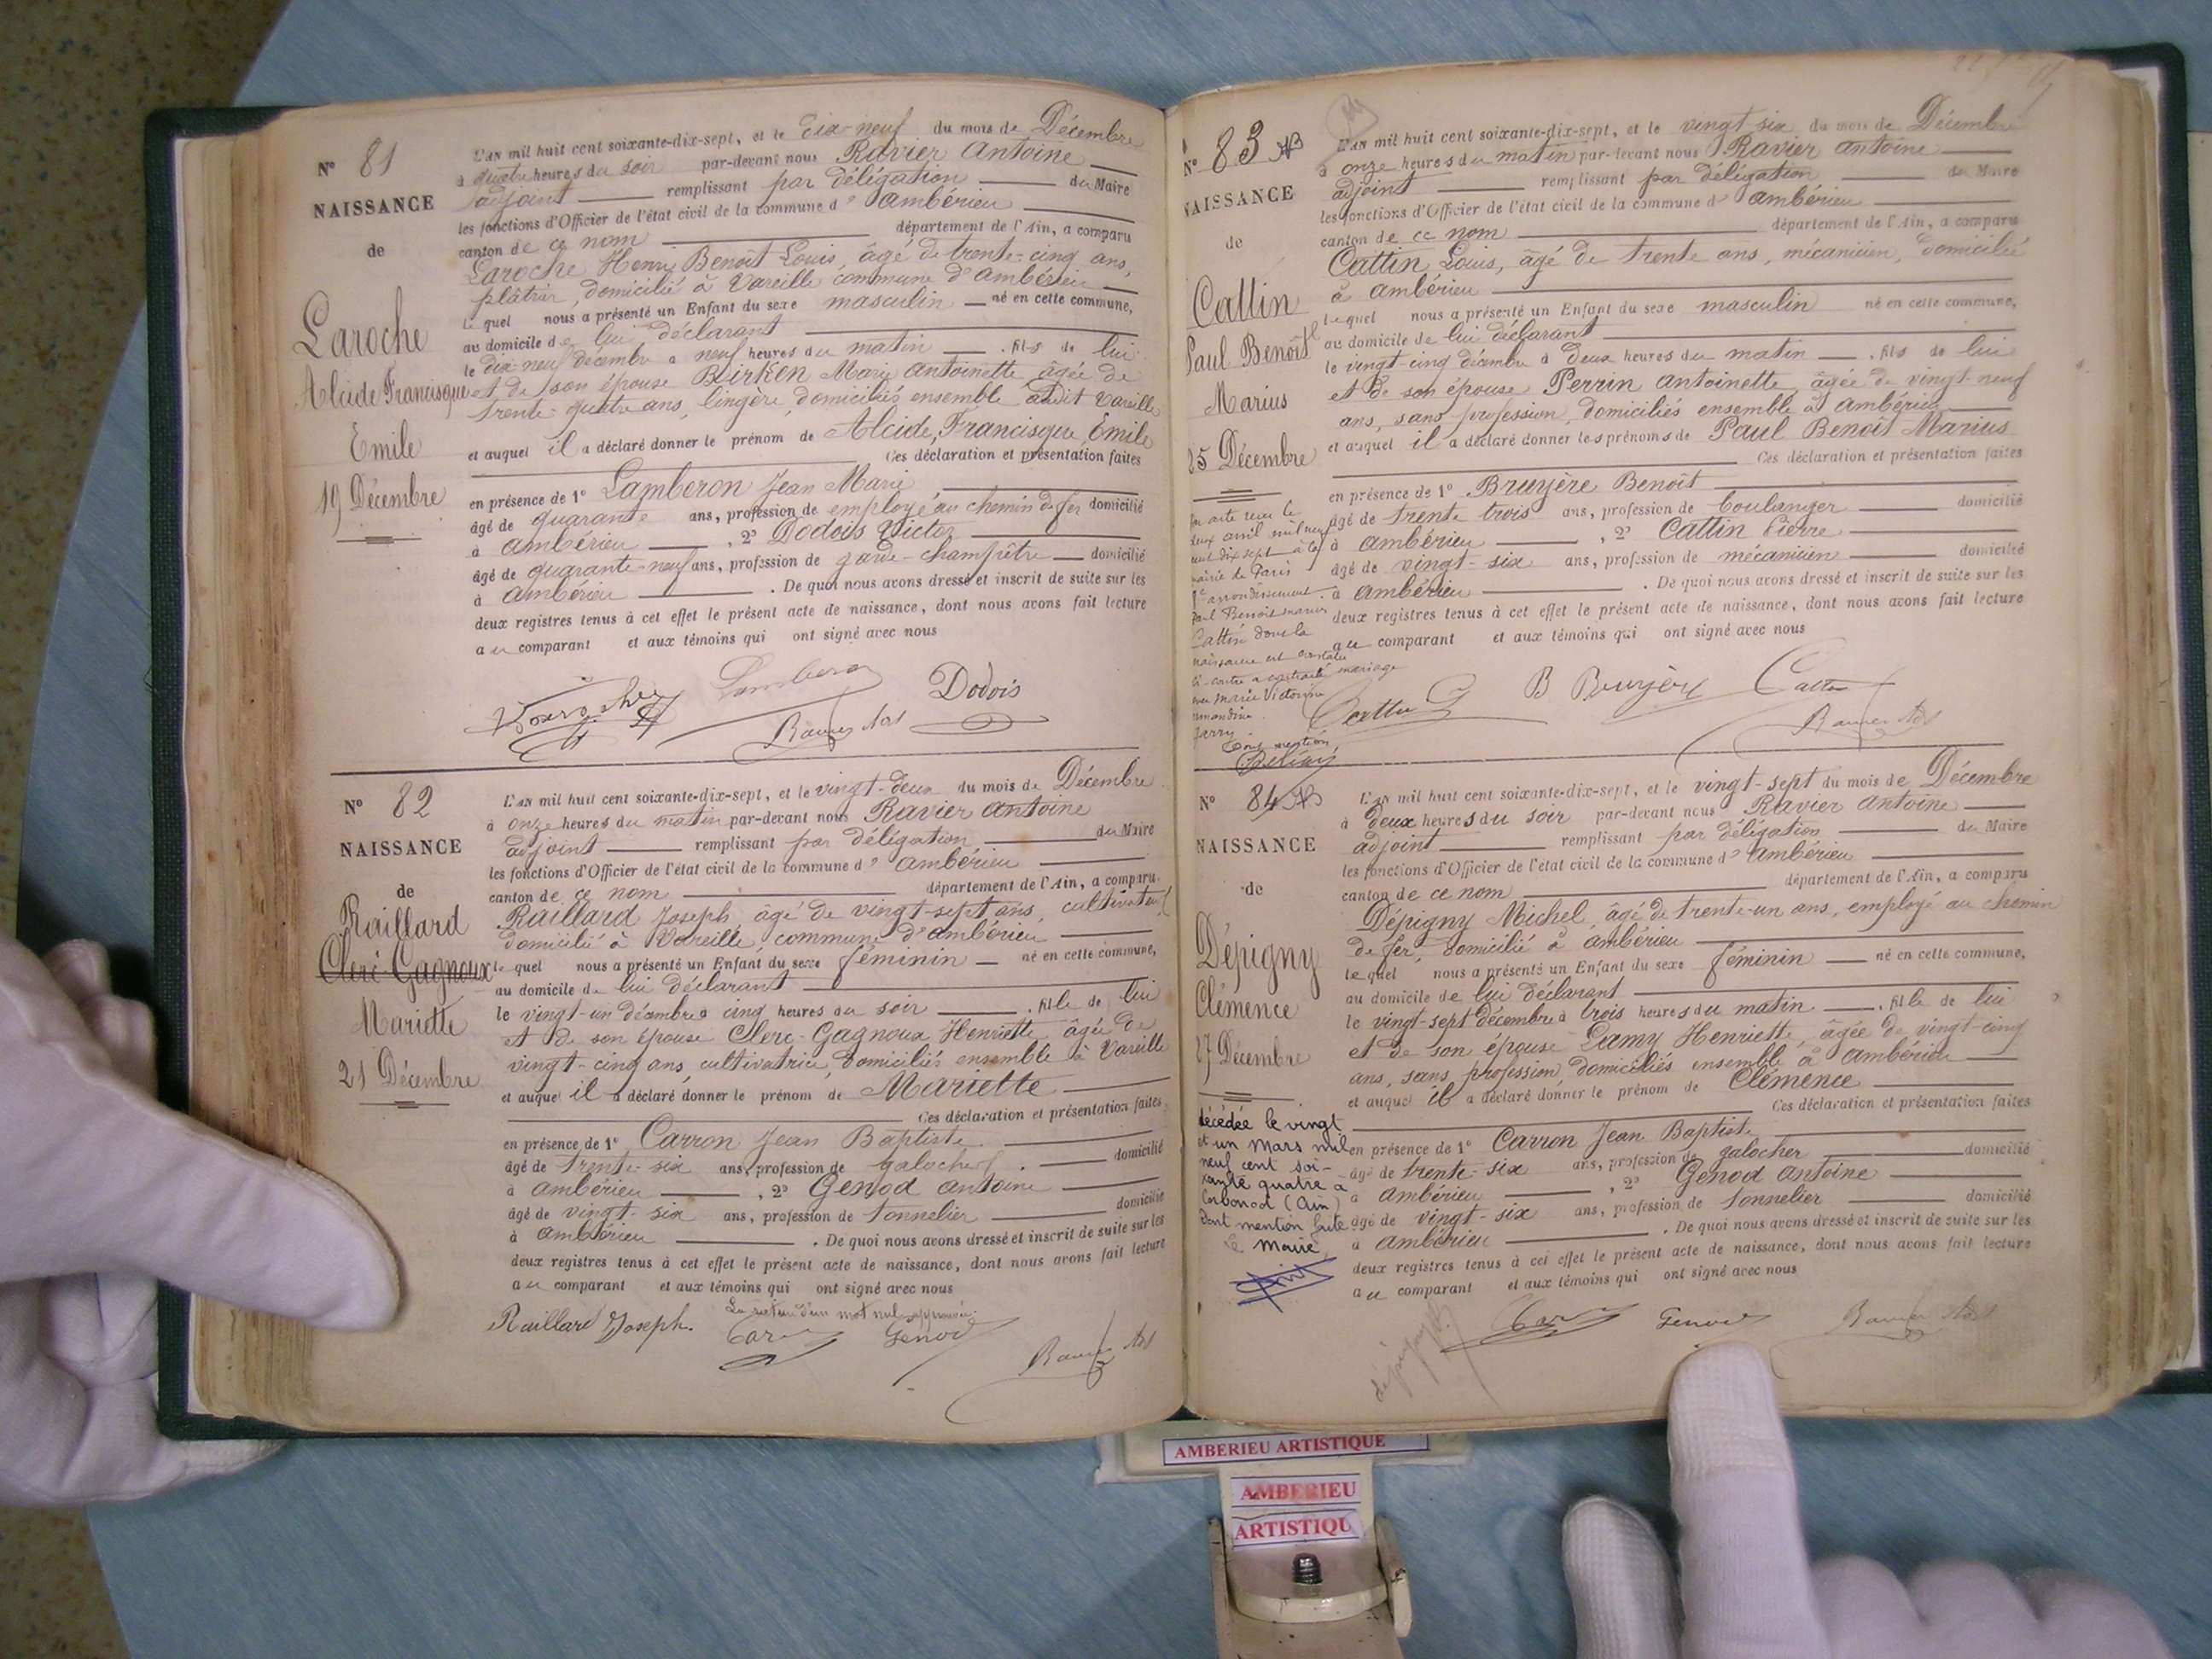 Nº 81
NAISSANCE
de
Laroche
Alcide Francisque
Emile
19 Décembre
L'AN mil huit cent soixante-dix-sept, et le dix-neuf du mois de Décembre
à quatre heures du soir par-devant nous Ravier Antoine
adjoint remplissant par délégation du Maire
les fonctions d'Officier de l'état civil de la commune d' Ambérieu
canton de ce nom département de l'Ain, a comparu
Laroche Henri Benoît Louis, âgé de trente-cinq ans,
plâtrier, domicilié à Vareille commune d'Ambérieu
lequel nous a présenté un Enfant du sexe masculin né en cette commune,
au domicile de lui déclarant
le dix-neuf décembre à neuf heures du matin . fils de lui
et de son épouse Birken Marie Antoinette âgée de
trente-quatre ans, lingère, domiciliés ensemble audit Vareille
et auquel il a déclaré donner le prénom de Alcide, Francisque, Emile
Ces déclaration et présentation faites
en présence de 1º Lamberon Jean Marie
âgé de quarante ans, profession de employé au chemin de fer domicilié
à Ambérieu , 2º Dodois Victor
âgé de quarante-neuf ans, profession de garde-champêtre domicilié
à Ambérieu . De quoi nous avons dressé et inscrit de suite sur les
deux registres tenus à cet effet le présent acte de naissance, dont nous avons fait lecture
au comparant et aux témoins qui ont signé avec nous
Lamberon Dodois
Ravier Adj
Nº 82
NAISSANCE
de
Raillard
Clerc-Gagnoux
Mariette
21 Décembre
L'AN mil huit cent soixante-dix-sept, et le vingt-deux du mois de Décembre
à onze heures du matin par-devant nous Ravier Antoine
adjoint remplissant par délégation du Maire
les fonctions d'Officier de l'état civil de la commune d' Ambérieu
canton de ce nom département de l'Ain, a comparu
Raillard Joseph, âgé de vingt-sept ans, cultivateur
domicilié à Vareille, commune d'Ambérieu
lequel nous a présenté un Enfant du sexe féminin né en cette commune,
au domicile de lui déclarant
le vingt-un décembre à cinq heures du soir . fille de lui
et de son épouse Clerc-Gagnoux Henriette âgée de
vingt-cinq ans cultivatrice, domiciliés ensemble à Vareille
et auquel il a déclaré donner le prénom de Mariette
Ces déclaration et présentation faites
en présence de 1º Carron Jean Baptiste
âgé de trente-six ans, profession de galocher . domicilié
à Ambérieu , 2º Genod Antoine
âgé de vingt-six ans, profession de tonnelier domicilié
à Ambérieu . De quoi nous avons dressé et inscrit de suite sur les
deux registres tenus à cet effet le présent acte de naissance, dont nous avons fait lecture
au comparant et aux témoins qui ont signé avec nous
La rature d'un mot nul approuvée.
Raillard Joseph. Carron Genod
Ravier Adj
Nº 83
NAISSANCE
de
Cattin
Paul Benoît
Marius
25 Décembre
L'AN mil huit cent soixante-dix-sept, et le vingt six du mois de Décembre
à onze heures du matin par-devant nous Ravier Antoine
adjoint remplissant par délégation du Maire
les fonctions d'Officier de l'état civil de la commune d' Ambérieu
canton de ce nom département de l'Ain, a comparu
Cattin Louis, âgé de trente ans, mécanicien, domicilié
à Ambérieu
lequel nous a présenté un Enfant du sexe masculin né en cette commune,
au domicile de lui déclarant
le vingt-cinq décembre à deux heures du matin . fils de lui
et de son épouse Perrin Antoinette, âgée de vingt-neuf
ans, sans profession, domiciliés ensemble à Ambérieu
et auquel il a déclaré donner les prénoms de Paul Benoît Marius
Ces déclaration et présentation faites
en présence de 1º Bruyère Benoît
âgé de trente trois ans, profession de boulanger domicilié
à Ambérieu , 2º Cattin Pierre
âgé de vingt-six ans, profession de mécanicien domicilié
à Ambérieu . De quoi nous avons dressé et inscrit de suite sur les
deux registres tenus à cet effet le présent acte de naissance, dont nous avons fait lecture
au comparant et aux témoins qui ont signé avec nous
acte reçu le
deux avril mil neuf
cent dix sept à la
mairie de Paris
arrondissement.
Paul Benoît Marius
Cattin dont la
naissance est constatée
ci-contre a contracté mariage
avec Marie Victorine
Jarry
Pour mention
Cattin B Bruyère Cattin
Ravier Adj
Nº 84
NAISSANCE
de
Dépigny
Clémence
27 Décembre
L'AN mil huit cent soixante-dix-sept, et le vingt-sept du mois de Décembre
à deux heures du soir par-devant nous Ravier Antoine
adjoint remplissant par délégation du Maire
les fonctions d'Officier de l'état civil de la commune d' Ambérieu
canton de ce nom département de l'Ain, a comparu
Dépigny Michel, âgé de trente-un ans, employé au chemin
de fer, domicilié à Ambérieu
lequel nous a présenté un Enfant du sexe féminin né en cette commune,
au domicile de lui déclarant
le vingt-sept décembre à trois heures du matin . fille de lui
et de son épouse Lamy Henriette, âgée de vingt-cinq
ans, sans profession, domiciliés ensemble à Ambérieu
et auquel il a déclaré donner le prénom de Clémence
Ces déclaration et présentation faites
en présence de 1º Carron Jean Baptiste
âgé de trente-six ans, profession de galocher domicilié
à Ambérieu , 2º Genod Antoine
âgé de vingt-six ans, profession de tonnelier domicilié
à Ambérieu . De quoi nous avons dressé et inscrit de suite sur les
deux registres tenus à cet effet le présent acte de naissance, dont nous avons fait lecture
au comparant et aux témoins qui ont signé avec nous
décédée le vingt
et un Mars mil
neuf cent soi-
xante quatre à
Corbonod (Ain)
Dont mention faite
le Maire
dépigny Carron Genod Ravier Adj
AMBERIEU ARTISTIQUE
AMBERIEU
ARTISTIQU